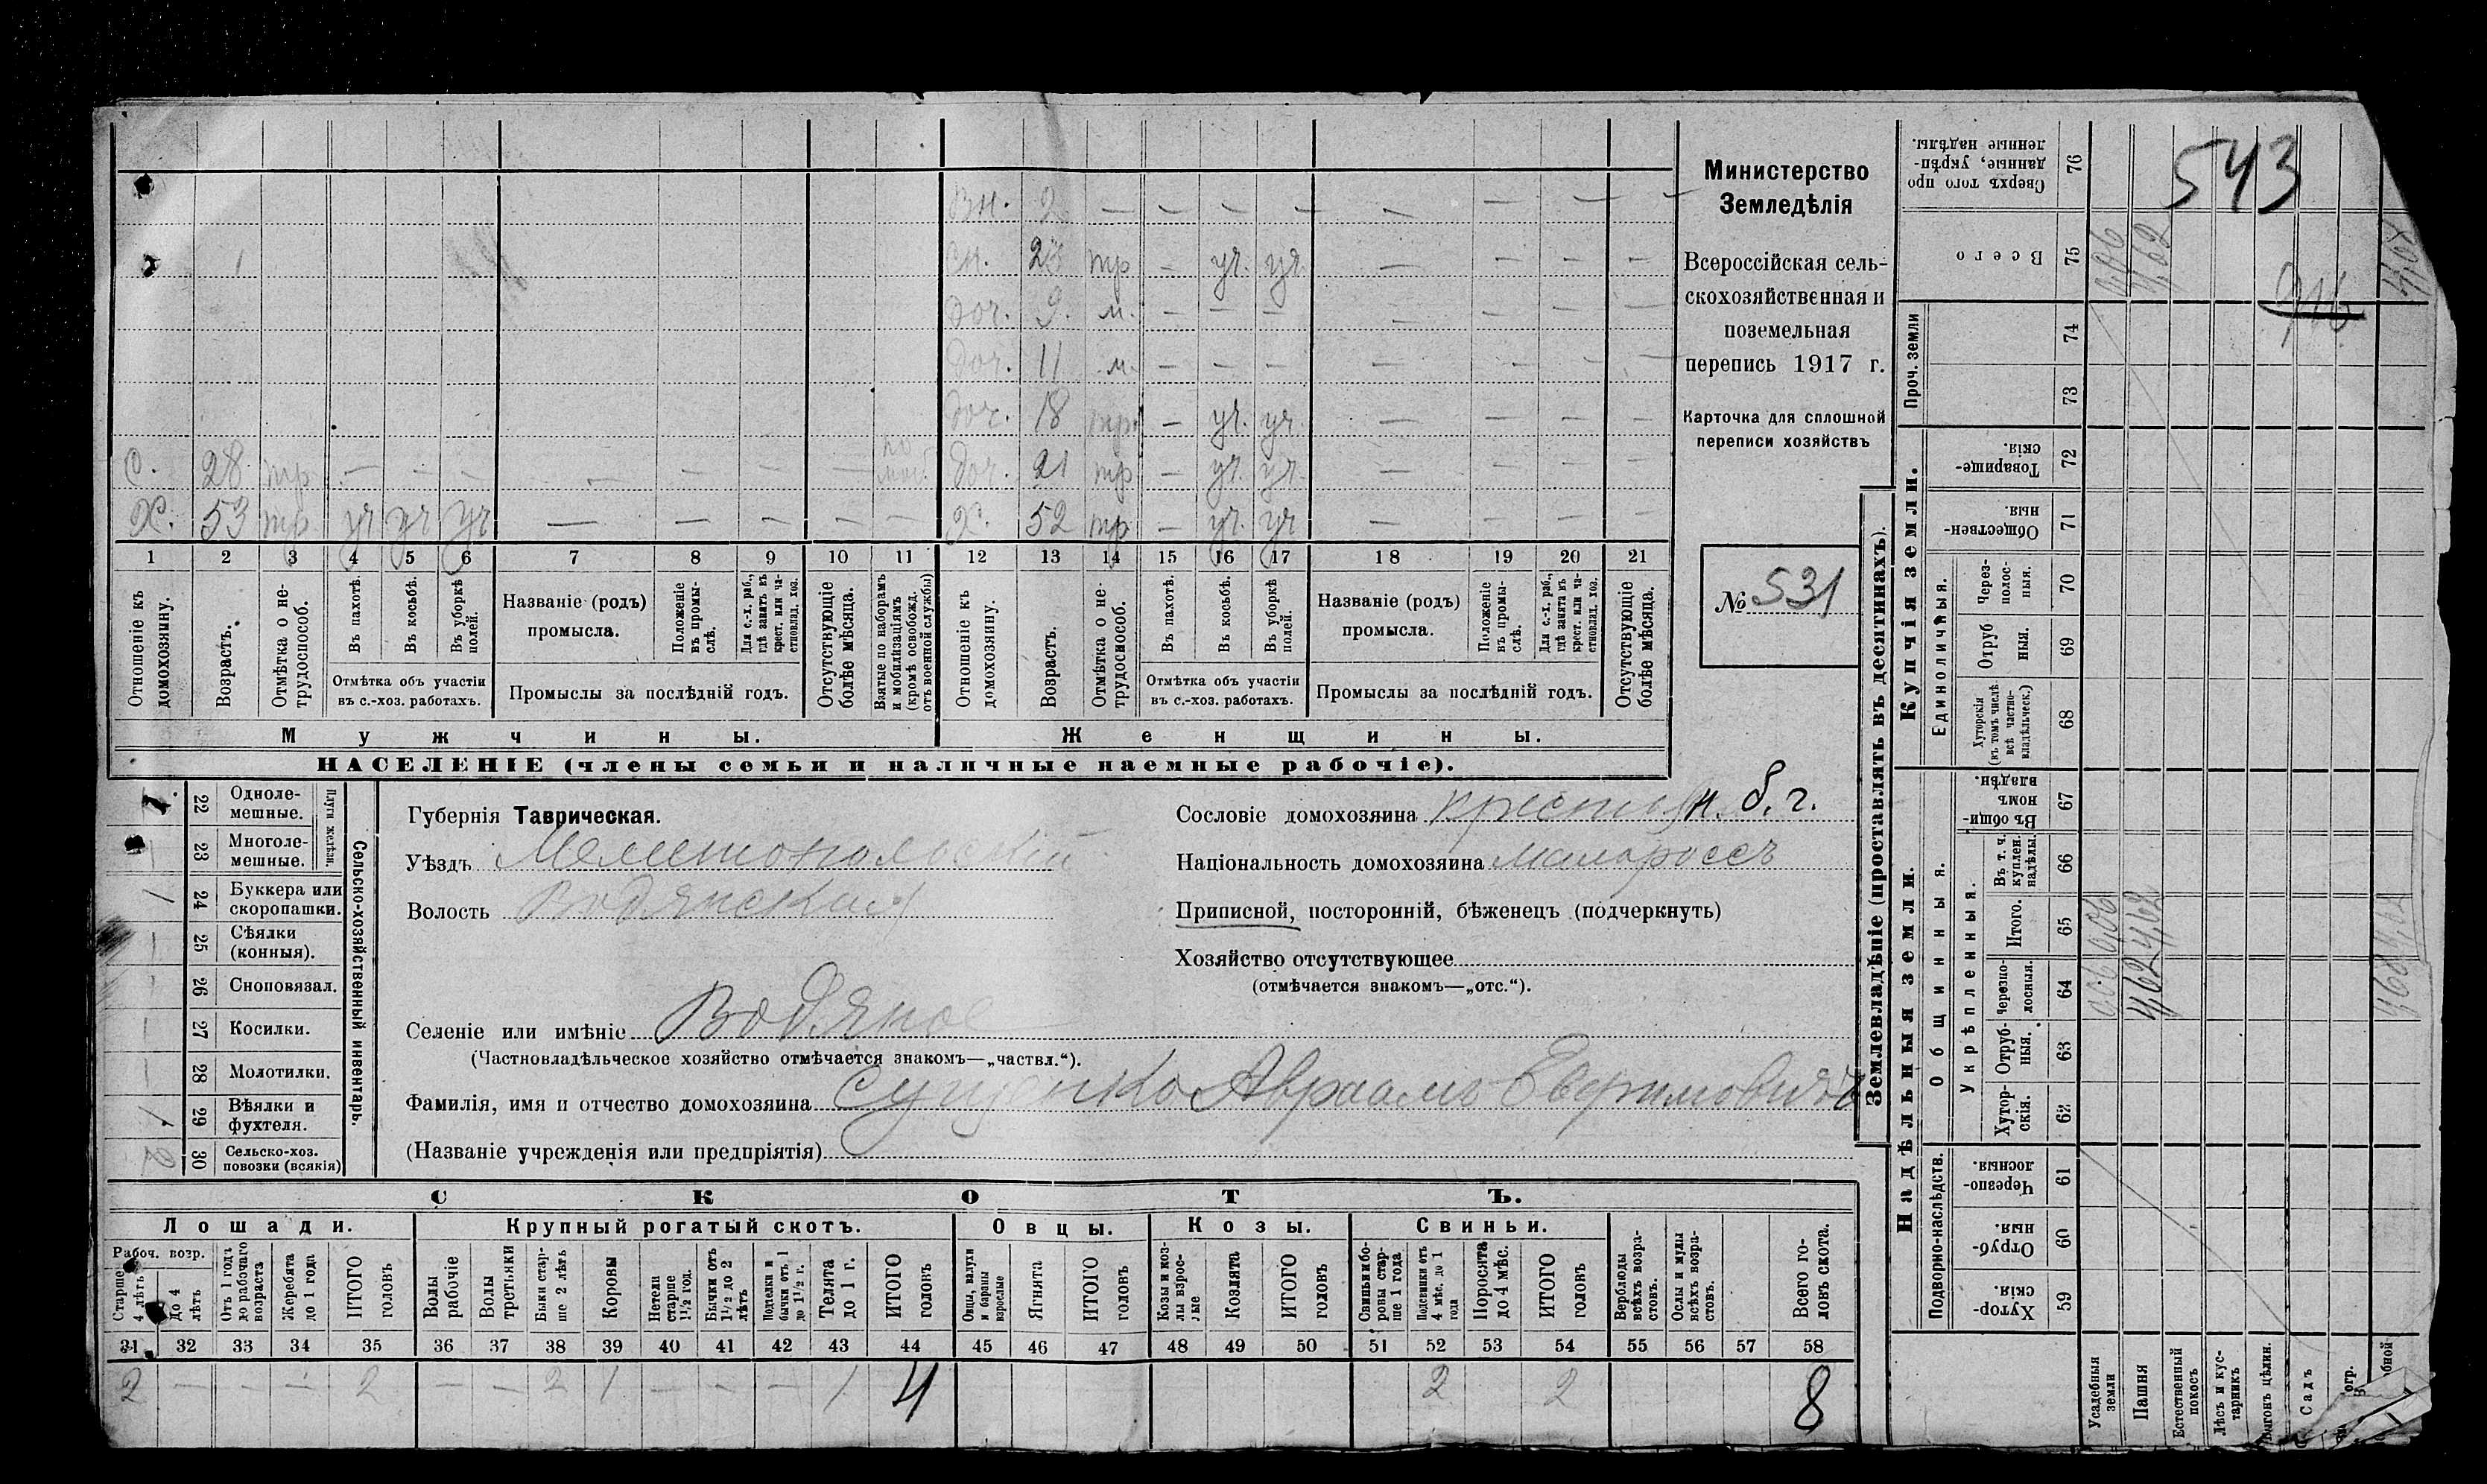 543
916
вн. 2 — — — — — — — —
сн. 23 тр — уч. уч. — — — —
доч. 9. м. — — — — — — —
доч. 11 м. — — — — — — —
доч. 18 тр. — уч. уч. — — — —
с. 28 тр — — — — — — — по моб. доч. 21 тр — уч. уч. — — — —
х. 53 тр уч уч уч — — — — — х. 52 тр — уч. уч — — — —
1 2 3 4 5 6 7 8 9 10 11 12 13 14 15 16 17 18 19 20 21
Отношеніе къ домохозяину.
Возрастъ.
Отмѣтка о не-трудоспособ.
Въ пахотѣ.
Въ косьбѣ.
Въ уборкѣ полей.
Отмѣтка объ участіи
въ с.-хоз. работахъ.
Названіе (родъ)
промысла.
Положеніе въ промы-слѣ.
Для с.-х. раб., гдѣ занятъ въ крест. или ча-стновлад. хоз.
Промыслы за послѣдній годъ.
Отсутствующіе болѣе мѣсяца.
Взятые по наборамъ и мобилизаціямъ (кромѣ освобожд. отъ военной службы)
Отношеніе къ домохозяину.
Возрастъ.
Отмѣтка о не-трудоспособ.
Въ пахотѣ.
Въ косьбѣ.
Въ уборкѣ полей.
Отмѣтка объ участіи
въ с.-хоз. работахъ.
Названіе (родъ)
промысла.
Положеніе въ промы-слѣ.
Для с.-х. раб., гдѣ занята въ крест. или ча-стновлад. хоз.
Промыслы за послѣдній годъ.
Отсутствующіе болѣе мѣсяца.
Мужчины. Женщины.
НАСЕЛЕНІЕ (члены семьи и наличные наемные рабочіе).
Министерство
Земледѣлія
Всероссійская сель-
скохозяйственная и
поземельная
перепись 1917 г.
Карточка для сплошной
переписи хозяйствъ
№ 531
Губернія Таврическая.
Уѣздъ Мелитопольскій
Волость Водянская
Селеніе или имѣніе Водяное
(Частновладѣльческое хозяйство отмѣчается знакомъ—„частвл.“).
Фамилія, имя и отчество домохозяина Сущенко Авраамъ Евфимовичъ
(Названіе учрежденія или предпріятія)
Сословіе домохозяина крестьян. б. г.
Національность домохозяина малороссъ
Приписной, посторонній, бѣженецъ (подчеркнуть)
Хозяйство отсутствующее
(отмѣчается знакомъ—„отс.“).
Сельско-хозяйственный инвентарь.
Плуги желѣзн.
1. 22 Одноле-мешные.
— 23 Многоле-мешные.
1 24 Буккера или скоропашки.
— 25 Сѣялки (конныя).
— 26 Сноповязал.
— 27 Косилки.
— 28 Молотилки.
1 29 Вѣялки и фухтеля.
2 30 Сельско-хоз. повозки (всякія)
СКОТЪ.
Лошади. Крупный рогатый скотъ. Овцы. Козы. Свиньи.
Рабоч. возр.
Старше 4 лѣтъ
до 4 лѣтъ
Отъ 1 годъ до рабочаго возраста
Жеребята до 1 года
ИТОГО головъ
Волы рабочіе
Волы третьяки
Быки стар-ше 2 лѣтъ
Коровы
Нетели старше 1½ год.
Бычки отъ 1½ до 2 лѣтъ
Подтелки и бычки отъ 1 до 1½ г.
Телята до 1 г.
ИТОГО головъ
Овцы, валухи и бараны взрослые
Ягнята
ИТОГО головъ
Козы и коз-лы взрос-лые
Козлята
ИТОГО головъ
Свиньи и бо-ровы стар-ше 1 года
Подсвинки отъ 4 мѣс. до 1 года
Поросята до 4 мѣс.
ИТОГО головъ
Верблюды всѣхъ возра-стовъ.
Ослы и мулы всѣхъ возра-стовъ.
Всего го-ловъ скота.
31 32 33 34 35 36 37 38 39 40 41 42 43 44 45 46 47 48 49 50 51 52 53 54 55 56 57 58
2 — — — 2 — — 2 1 — — — 1 4 2 2 8
Землевладѣніе (проставлять въ десятинахъ).
Купчія земли.
Надѣльныя земли.
Сверхъ того про-данные, укрѣп-ленные надѣлы. 76
Всего 75
Проч. земли 74 73
Товарище-скія. 72
Обществен-ныя. 71
Единоличныя.
Через-полос-ныя. 70
Отруб ныя. 69
Хуторскія (въ томъ числѣ всѣ частно-владѣльческ.) 68
Общинныя.
Въ общи-номъ владѣн. 67
Укрѣпленныя.
Въ т. ч. куплен. надѣлы. 66
Итого. 65
Черезпо-лосныя. 64
Отруб-ныя. 63
Хутор-скія. 62
Подворно-наслѣдств.
Черезпо-лосныя. 61
Отруб-ныя. 60
Хутор-скія. 59
Усадебныя земли 0,06 0,06 0,06
Пашня 4,62 4,62 4,62
Естественный покосъ
Лѣсъ и кус-тарникъ
Выгонъ цѣлин.
Садъ
огр.
бной 4,68 4,68 4,68